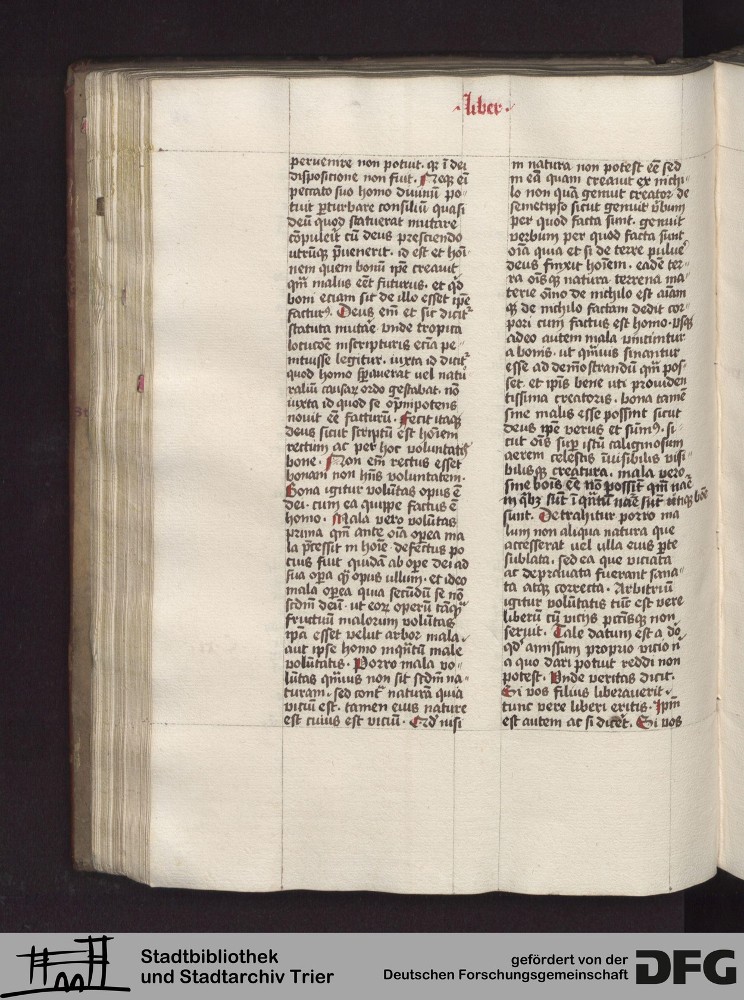 liber
peruenire non potuit. qr ī dei
dispositione non fuit. Neqꝫ eī
peccato suo homo diuinū po-
tuit ꝑturbare consiliū quasi
deū quod statuerat mutare
cōpuleit cū deus presciendo
utrūqꝫ p̄uenerit. id est et hoī
nem quem bonū ip̄e creauit
qm̄ malus eēt futurus. et qd̄
boni etiam sit de illo esset ip̄e
factur⁹. Deus em̄ et sic dicit̉
statuta mutār̄ vnde tropica
locucōe inscripturis eciā pe-
nituisse legitur. iuxta id dicit̉
quod homo sp̄auerat vel natu
raliū causaꝝ ordo gestabat. nō
iuxta id quod se op̄mipotens
nouit eē facturū. fecit itaqꝫ
deus sicut scriptū est hoīem
rectum ac per hoc voluntatis
bone. Non em̄ rectus esset
bonam non hn̄s voluntatem.
Bona igitur volūtas opus ē
dei. cum ea quippe factus ē
homo. Mala vero volūtas
prima qm̄ ante oīa opea ma
la p̄cessit in hoīe. defectus po
cius fuit quidā ab ope dei ad
sua opa qꝫ opus ullum. et ideo
mala opea quia secūdū se nō
scdm̄ deū. ut eoꝝ operū tāqꝫ
fructuū malorum volūtas
ipa esset velut arbor mala.
aut ipse homo inqn̄tū male
volūtatis. Porro mala vo-
lūtas qm̄uis non sit scdm̄ na-
turam. sed cont̉ naturā quia
viciū est. tamen eius nature
est cuius est viciū. Qd̉ nisi
in natura non potest eē sed
in eā quam creauit ex nichi-
lo non quā genuit creator de
semetipso sicut genuit v̄bum
per quod facta sunt. genuit
verbum per quod facta sunt
oīa quia et si de terre puluē
deus finxit hoīem. eadē ter-
ra oīsqꝫ natura terrena ma-
terie oīno de nichilo est aīam
qꝫ de nichilo factam dedit cor-
pori cum factus est homo. vsqꝫ
adeo autem mala vincuntur
a bonis. ut qm̄uis sinantur
esse ad demōstrandū qm̄ pos-
set. et ip̄is bene uti prouiden
tissima creatoris. bona tamē
sine malis esse possint sicut
deus ip̄e verus et sum⁹. si-
cut oīs sup istū caliginosum
aerem celestis īuisibilis visi-
bilisqꝫ creatura. mala vero
sine bōis eē nō possūt qm̄ nāe
in qꝫ sūt ī qn̄tū nāe sūt utiqꝫ bōe
sunt. Detrahitur porro ma
lum non aliqua natura que
accesserat vel illa eius ꝑte
sublata. sed ea que viciata
ac deprauata fuerant sana-
ta atqꝫ correcta. Arbitriū
igitur volūtatis tūc est vere
liberū cū vicijs pctīsqꝫ non
seruit. Tale datum est a dō
qd̉ amissum proprio vicio n̄
a quo dari potuit reddi non
potest. Vnde veritas dicit.
Si vos filius liberauerit.
tunc vere liberi eritis. Ip̄m
est autem ac si dicēt. Si vos
Stadtbibliothek
und Stadtarchiv Trier
gefördert von der
Deutschen Forschungsgemeinschaft
DFG